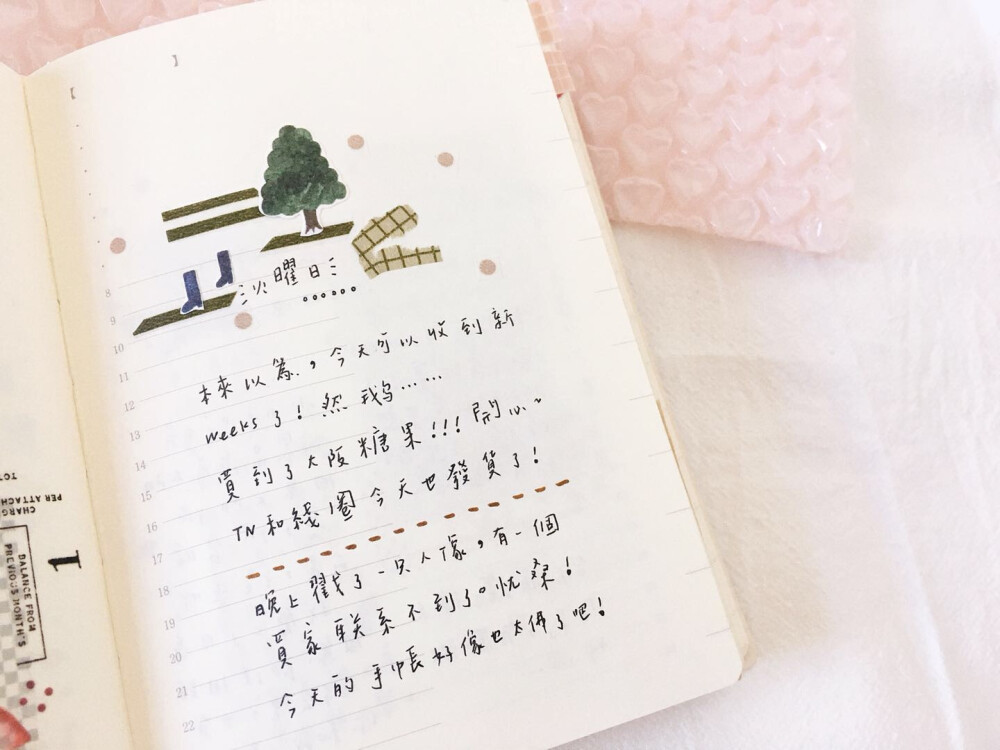 火曜日
8
9
10
11
12
13
14
15
16
17
18
19
20
21
22
本來以為，今天可以收到新
weeks了！然鹅……
買到了大阪糖果!!! 開心~
TN和綫圈今天也發貨了！
晚上戳了一只人像，有一個
買家联系不到了。忧桑！
今天的手帳好像也太佛了吧！
1
BALANCE FROM
PREVIOUS MONTH'S
PER ATTACH